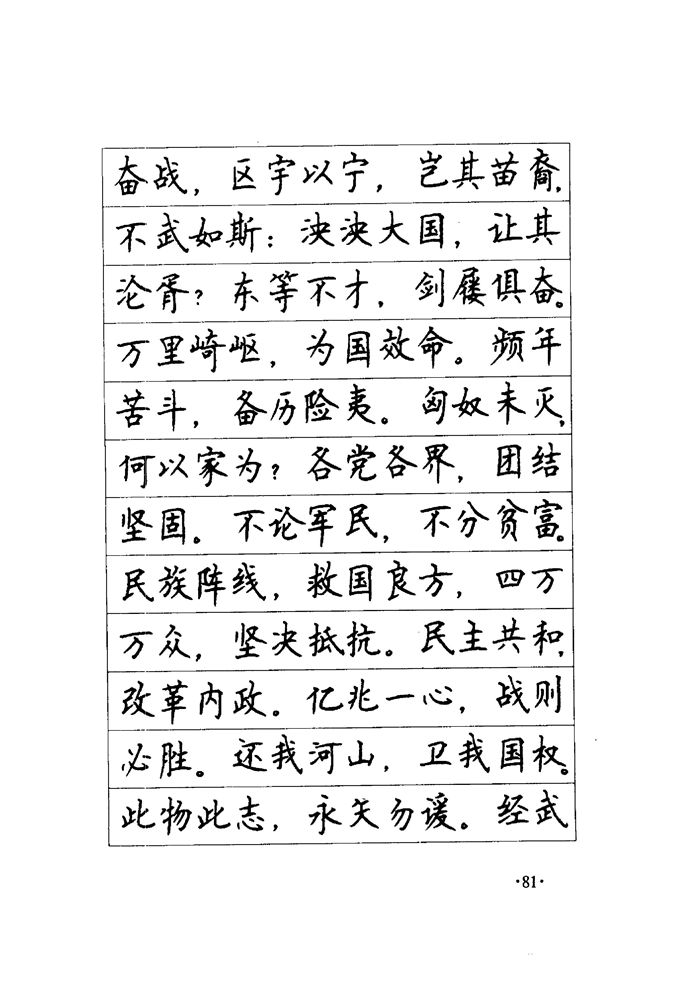 奋战，区宇以宁，岂其苗裔，
不武如斯：泱泱大国，让其
沦胥？东等不才，剑屦俱奋。
万里崎岖，为国效命。频年
苦斗，备历险夷。匈奴未灭，
何以家为？各党各界，团结
坚固。不论军民，不分贫富。
民族阵线，救国良方，四万
万众，坚决抵抗。民主共和，
改革内政。亿兆一心，战则
必胜。还我河山，卫我国权。
此物此志，永矢勿谖。经武
·81·